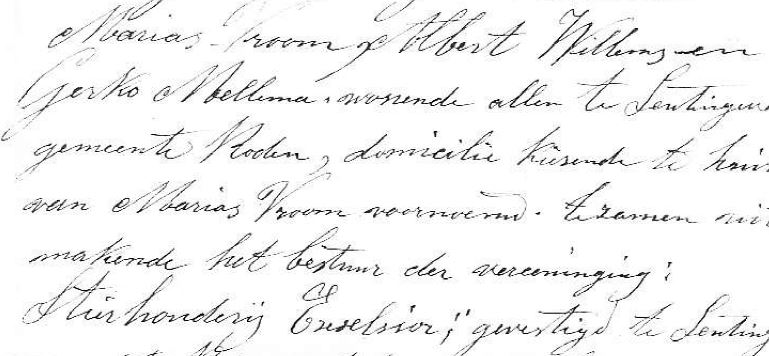 Marias Vroom, Albert Willems en
Gerko Mellema, wonende allen te
gemeente Roden, domicilie kiesende te
van Marias Vroom voornoemd. tezamen
makende het bestuur der vereeniging:
Stierhouderij Exselsior; gevestigd te